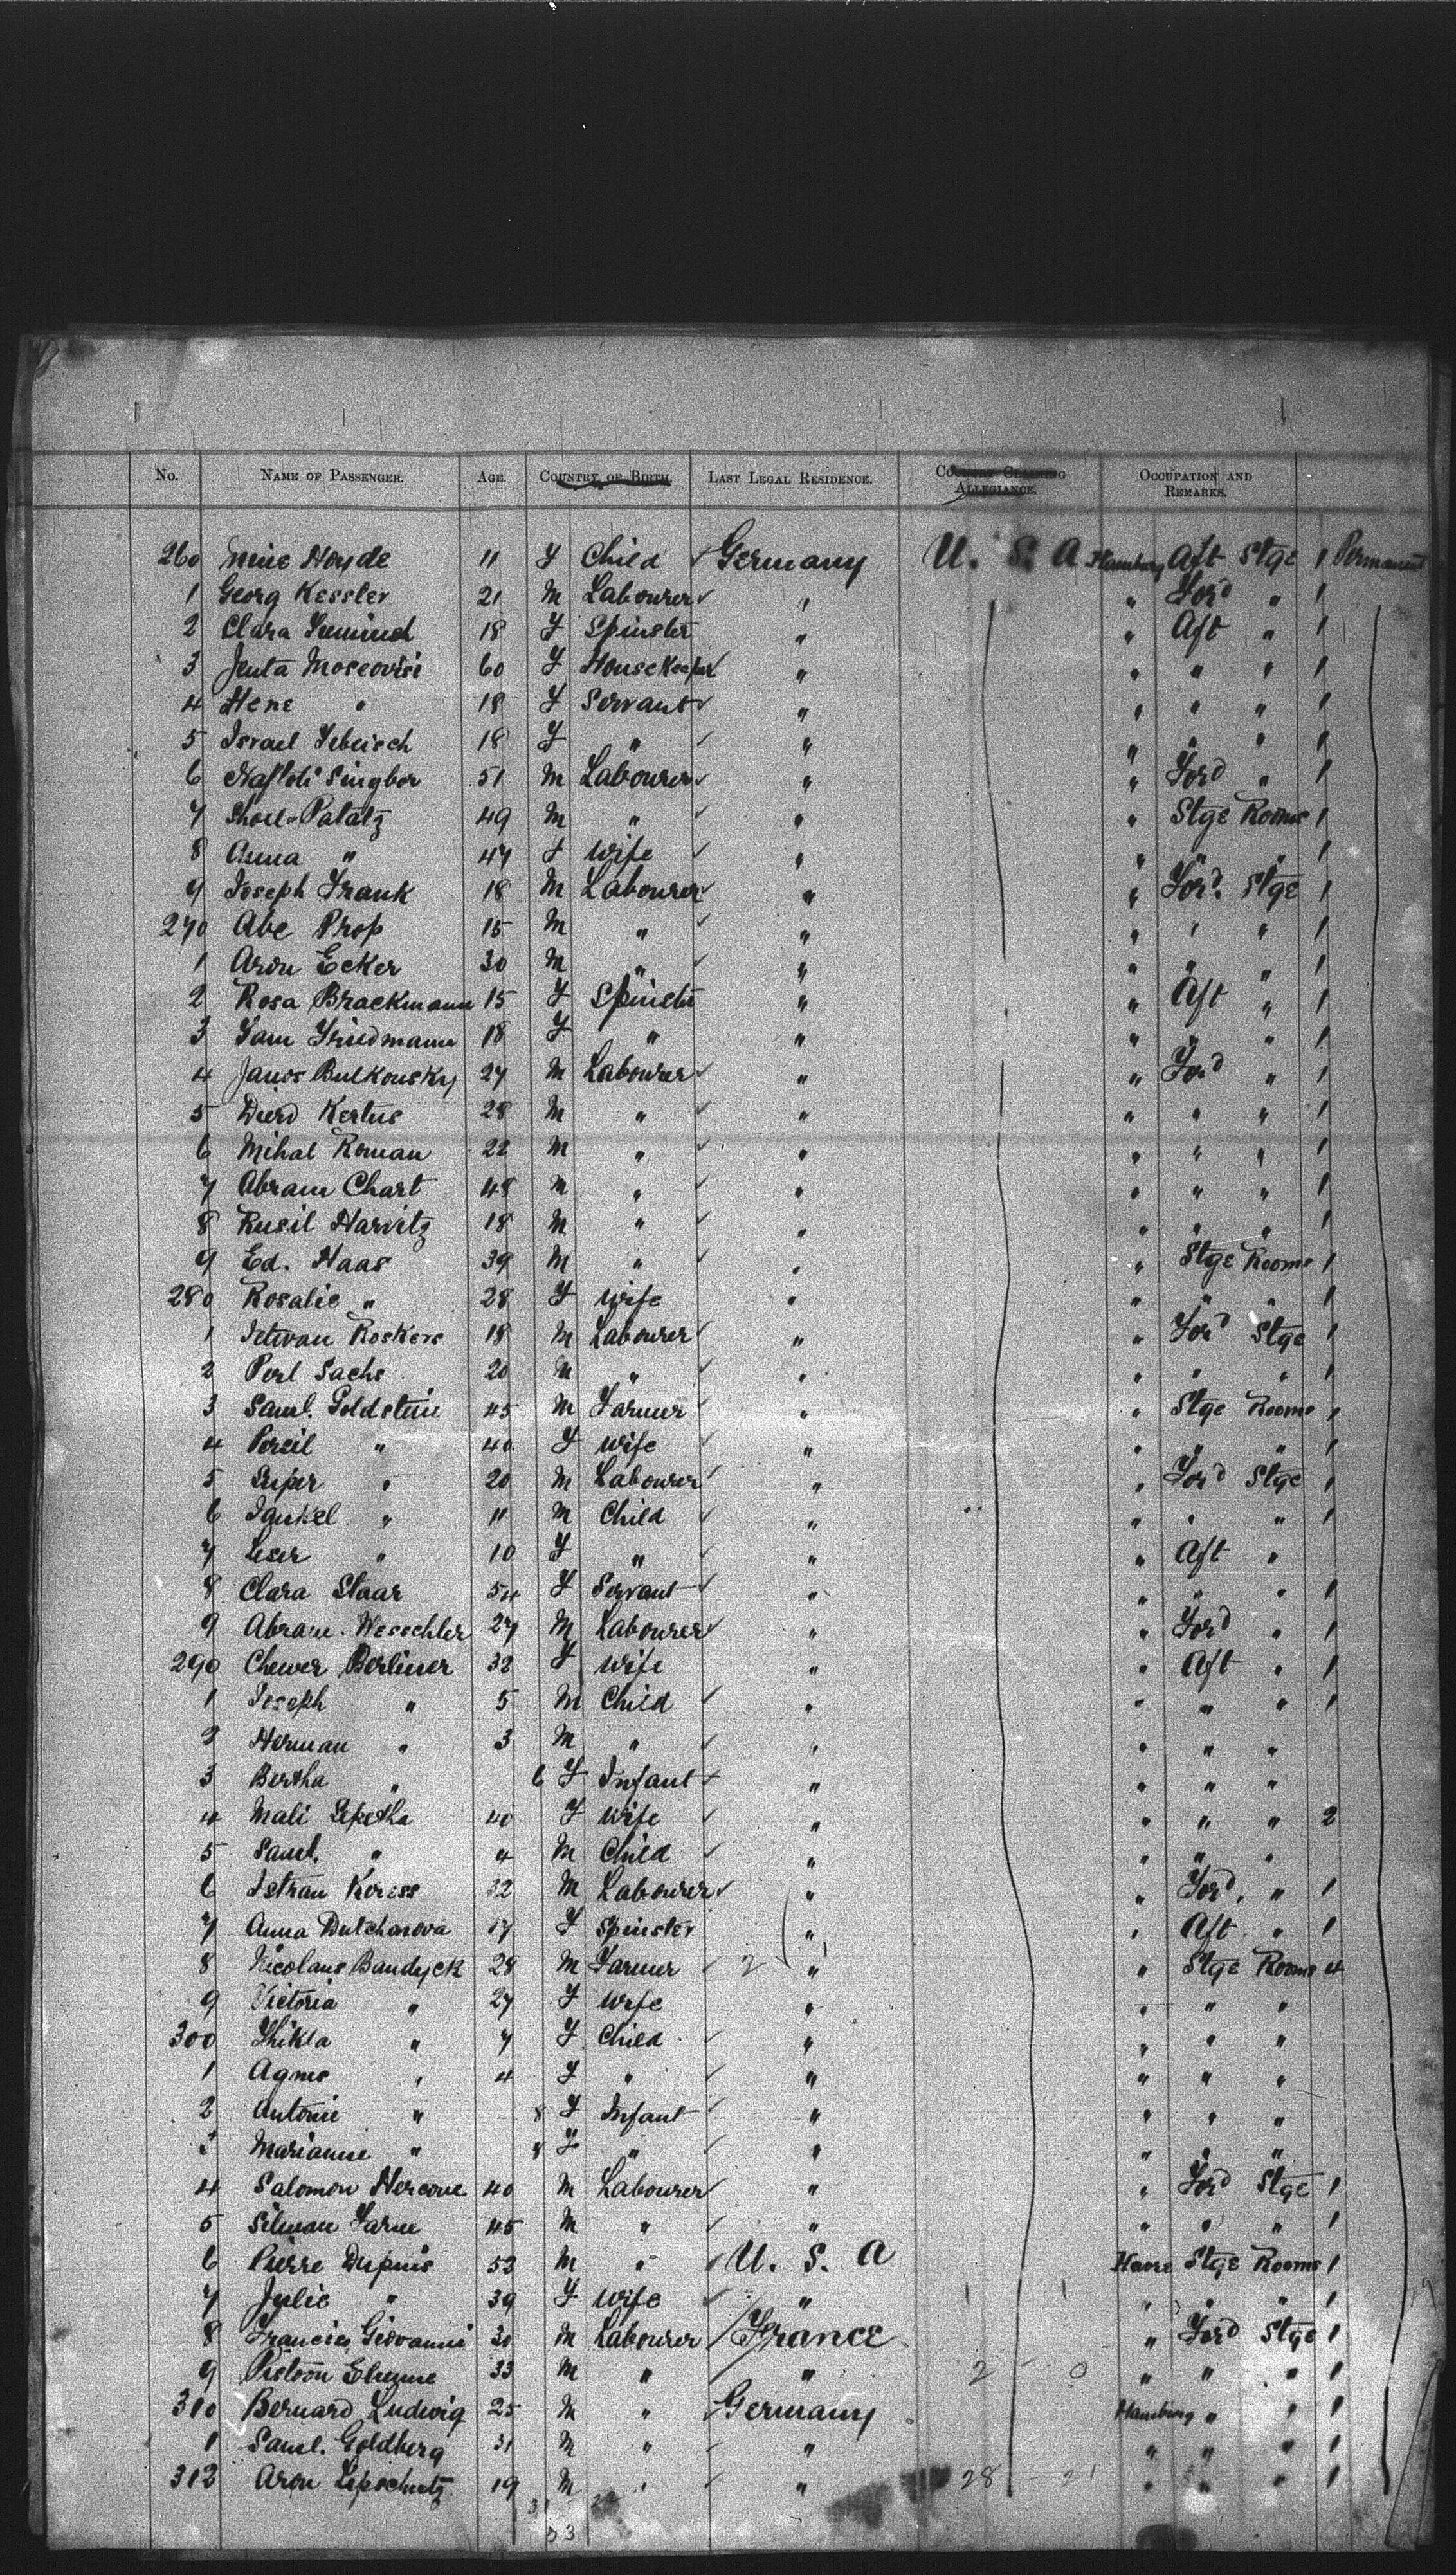 No. NAME OF PASSENGER. AGE. COUNTRY OF BIRTH. LAST LEGAL RESIDENCE. COUNTRY CLAIMING ALLEGIANCE. OCCUPATION AND REMARKS.
260 Heyde 11 F Child Germany U. S. A Hamburg Aft Stge 1 Permanent
1 Georg Kessler 21 M Labourer " " Ford " 1
2 Clara 18 F Spinster " " Aft " 1
3 Jenta Moscovisi 60 F Housekeeper " " " " 1
4 Hene " 18 F Servant " " " " 1
5 Israel 18 F " " " " " 1
6 Singber 51 M Labourer " " Ford " 1
7 Patatz 49 M " " " Stge Rooms 1
8 Anna " 47 F Wife " " " " 1
9 Joseph Frank 18 M Labourer " " Ford. Stge 1
270 Abe Prop 15 M " " " " " 1
1 Aron Ecker 30 M " " " " " 1
2 Rosa Brackmann 15 F Spinster " " Aft " 1
3 Friedmann 18 F " " " " " 1
4 Janos Bulkousky 27 M Labourer " " Ford " 1
5 Kertus 28 M " " " " " 1
6 Mihal Roman 22 M " " " " " 1
7 Abram Chart 48 M " " " " " 1
8 Rusil Harvitz 18 M " " " " " 1
9 Ed. Haas 39 M " " " Stge Rooms 1
280 Rosalie " 28 F Wife " " " " 1
1 Istwan Roskers 18 M Labourer " " Ford Stge 1
2 Perl Sachs 20 M " " " " " 1
3 Saml. Goldstein 45 M Farmer " " Stge Rooms 1
4 Percil " 40 F Wife " " " " 1
5 " 20 M Labourer " " Ford Stge 1
6 Jankel " 11 M Child " " " " 1
7 Leser " 10 F " " " Aft "
8 Clara Staar 54 F Servant " " " " 1
9 Abram. Wesschler 27 M Labourer " " Ford " 1
290 Chewer Berliner 32 F Wife " " Aft " 1
1 Joseph " 5 M Child " " " " 1
2 Herman " 3 M " " " " "
3 Bertha " 6 F Infant " " " "
4 Mali 40 F Wife " " " " 2
5 Saml. " 4 M Child " " " "
6 Istran Keress 32 M Labourer " " Ford. " 1
7 Anna Dutcharova 17 F Spinster " " Aft " 1
8 Nicolaus Bandyck 28 M Farmer 2 " " Stge Rooms 4
9 Victoria " 27 F Wife " " " "
300 Thikla " 7 F Child " " " "
1 Agnes " 4 F " " " " "
2 Antonie " 8 F Infant " " " "
3 Marianne " 8 F " " " " "
4 Salomon 40 M Labourer " " Ford Stge 1
5 45 M " " " " " 1
6 Pierre Dupuis 52 M " U. S. A Havre Stge Rooms 1
7 Julie " 39 F Wife " " " " 1
8 Giovanni 30 M Labourer France " Ford Stge 1
9 Etienne 33 M " " 2 - 0 " " " 1
310 Bernard Ludwig 25 M " Germany Hamburg " " 1
1 Saml. Goldberg 31 M " " " " " 1
312 Aron Lipschutz 19 M " " 28 - 21 " " " 1